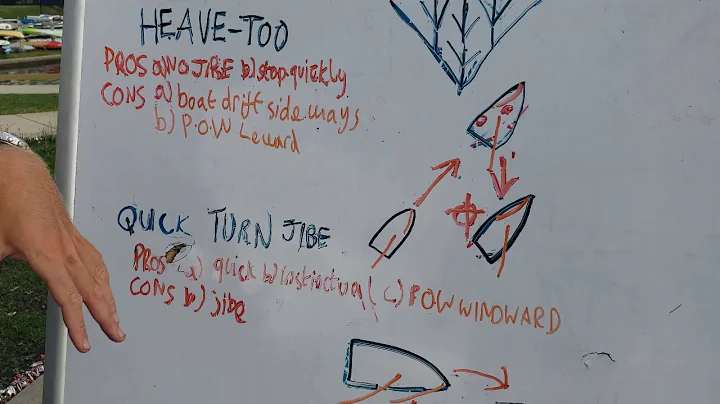 HEAVE-TOO
PROS a) NO JIBE b) stop quickly
CONS a) boat drift side ways
b) P.O.W Leward
QUICK TURN JIBE
PROS a) quick b) instinctual c) POW WINDWARD
CONS b) jibe